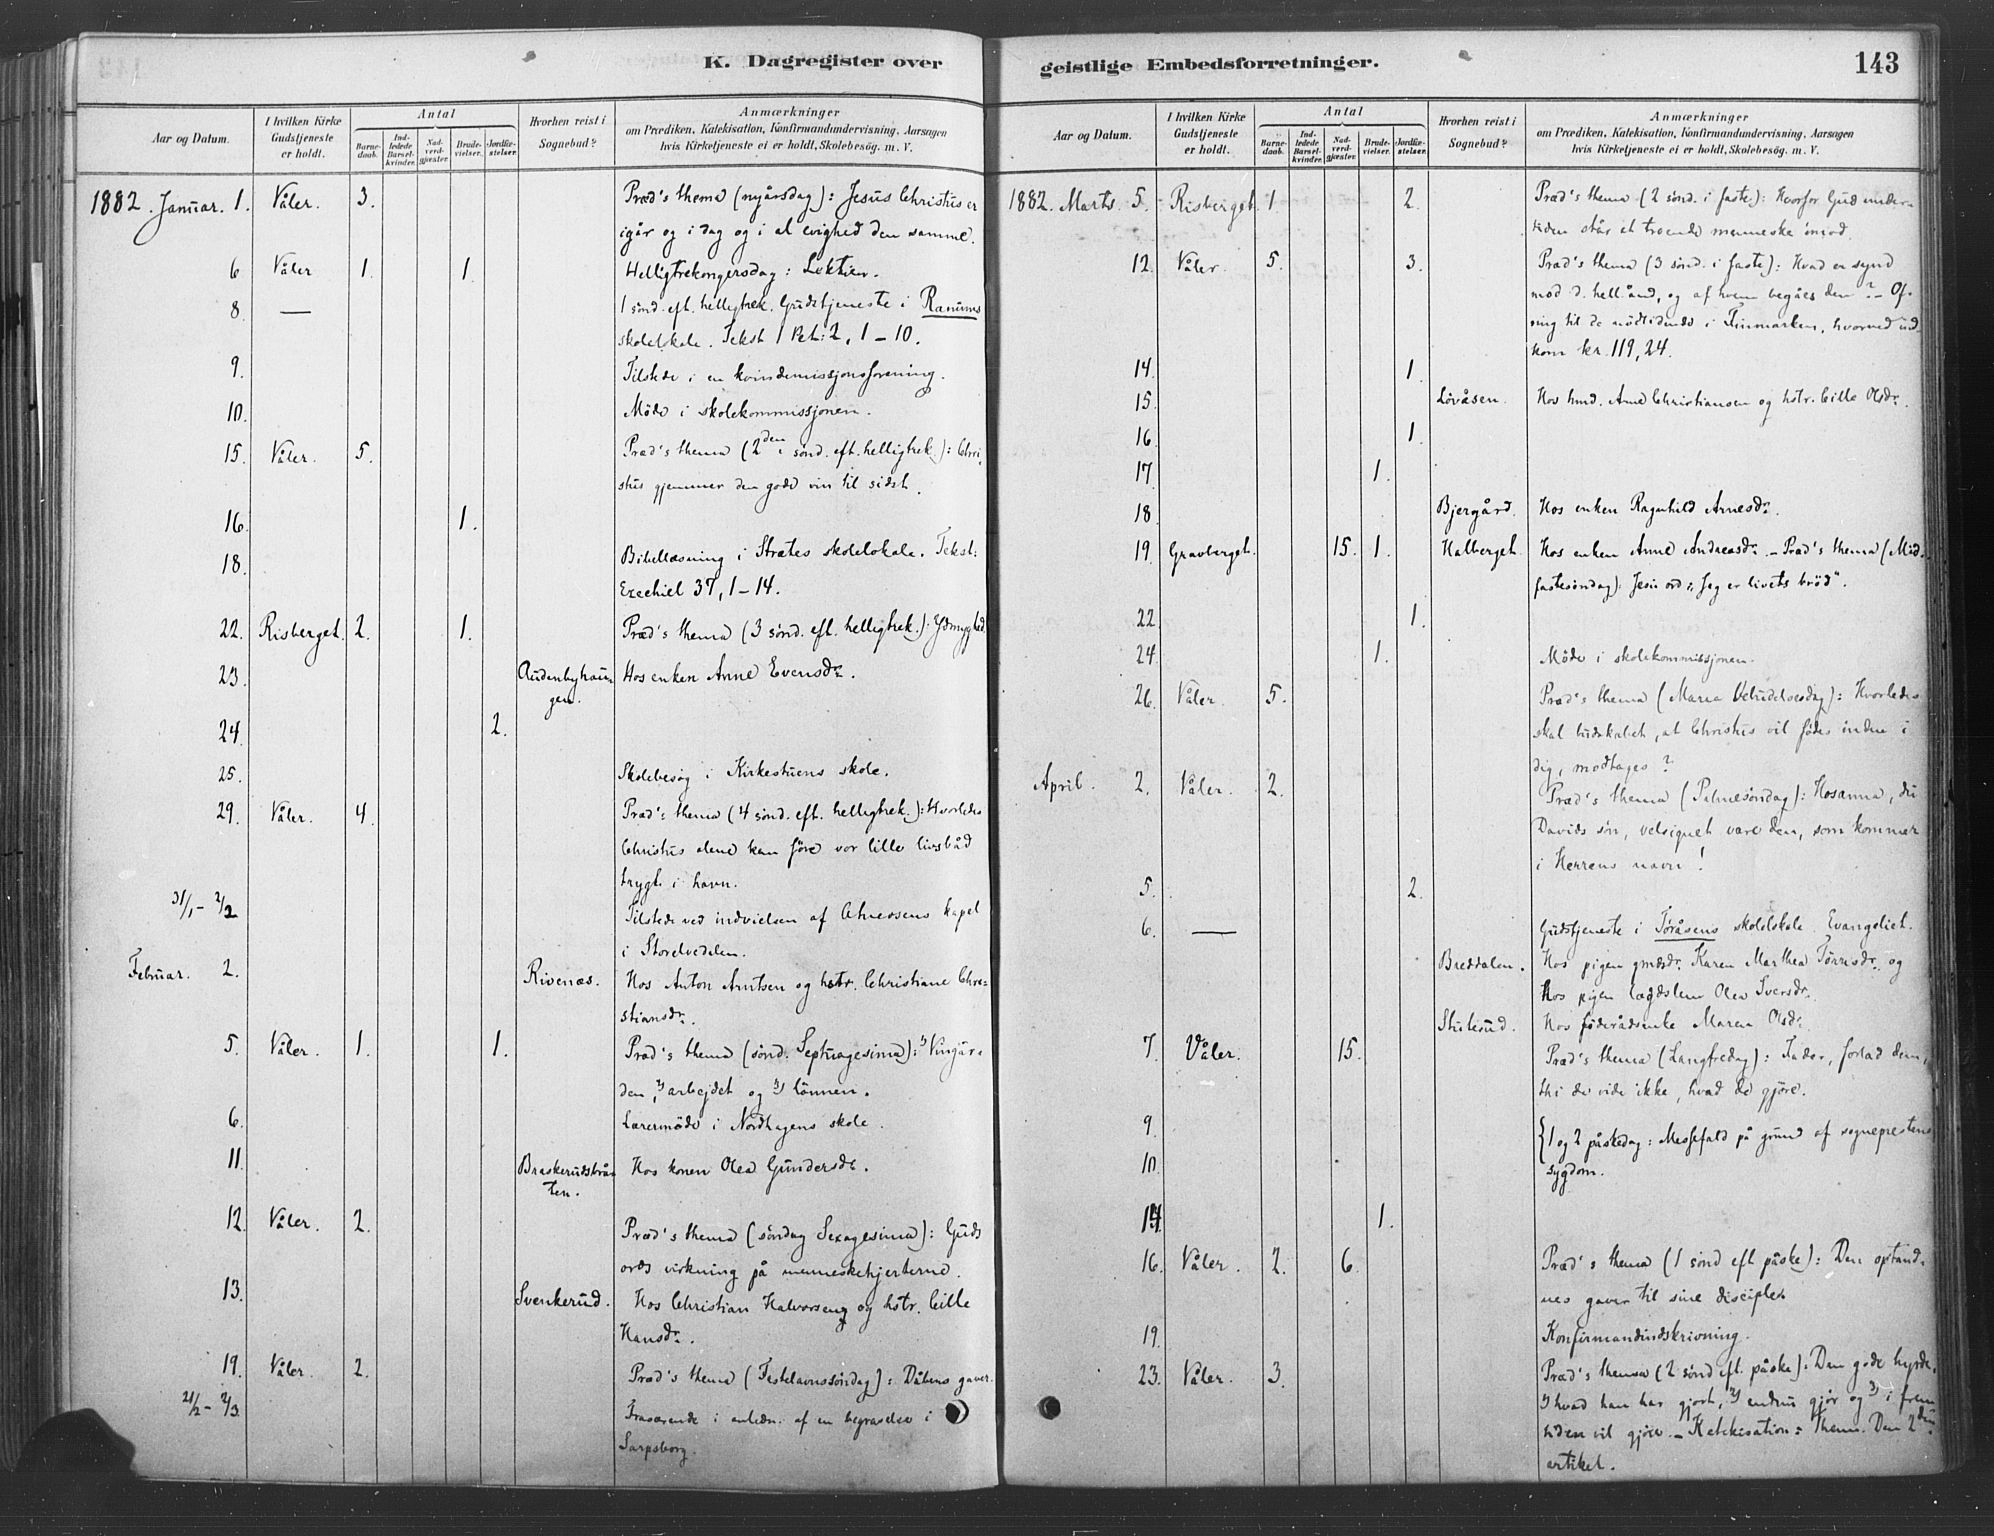 K. Dagregister over
Aar og Datum.
I hvilken Kirke Gudstjeneste er holdt.
Antal
Barne-daab.
Ind-ledede Barsel-kvinder.
Nad-verd-gjæster.
Brude-vielser.
Jordfæ-stelser.
Hvorhen reist i Sognebud?
Anmærkninger
om Prædiken, Katekisation, Konfirmandundervisning, Aarsagen
hvis Kirketjeneste ei er holdt, Skolebesög. m. V.
1882. Januar. 1. Våler. 3. Præd's thema (nyårsdag): Jesus Christus er
igår og i dag og i al evighed den samme.
6 Våler 1. 1. Helligtrekongersdag: Lektien.
8. — 1 sønd. eft. helligtrek. Gudstjeneste i Ranums
skolelokale. Tekst 1 Pet: 2, 1–10.
9. Tilstede i en kvindemissjonsforening.
10. Möde i skolekommissjonen.
15. Våler. 5. Præd's thema (2den sønd. eft. helligtrek.): Chri-
stus gjemmer den gode vin til sidst.
16. 1.
18. Bibellæsning i Strætes skolelokale. Tekst:
Ezechiel 37, 1–14.
22. Risberget. 2. 1. Præd's thema (3 sønd. eft. helligtrek.): Ydmyghed.
23. Audenbyhaun- Hos enken Anne Evensdr.
gen.
24. 2.
25. Skolebesøg i Kirkestuens skole.
29. Våler. 4. Præd's thema (4 sønd. eft. helligtrek.): Hvorledes
Christus alene kan føre vor lille livsbåd
trygt i havn.
31/1 – 2/2 Tilstede ved indvielsen af Atnessens kapel
i Storelvedalen.
Februar. 2. Rivenæs. Hos Anton Arntsen og hstr. Christiane Chri-
stiansdr.
5. Våler. 1. 1. Præd's thema (sønd. Septuagesima): 1) Vingår-
den, 2) arbejdet og 3) lönnen.
6. Lærermöde i Nordhagens skole.
11. Braskerudsbrå- Hos konen Olea Gundersdr.
ten.
12. Våler. 2. Præd's thema (søndag Sexagesima): Guds
ords virkning på menneskehjerterne.
13. Svenkerud. Hos Christian Halvorsen og hstr. Cille
Hansdr.
19. Våler. 2. Præd's thema (Fastelavnssöndag): Dåbens gaver.
21/2 – 2/3. Fraværende i anledn. af en begravelse i
Sarpsborg.
geistlige Embedsforretninger.
143
Aar og Datum.
I hvilken Kirke Gudstjeneste er holdt.
Antal
Barne-daab.
Ind-ledede Barsel-kvinder.
Nad-verd-gjæster.
Brude-vielser.
Jordfæ-stelser.
Hvorhen reist i Sognebud?
Anmærkninger
om Prædiken, Katekisation, Konfirmandundervisning, Aarsagen
hvis Kirketjeneste ei er holdt, Skolebesög. m. V.
1882. Marts. 5. Risberget. 1. 2. Præd's thema (2 sønd. i faste): Hvorfor Gud under-
tiden står et troende menneske imod.
12. Våler. 5. 3. Præd's thema (3 sønd. i faste): Hvad er synd
mod d. hell. ånd, og af hvem begåes den? – Of-
ring til de nödlidende i Finmarken, hvorved ud-
kom kr. 119,24.
14. 1.
15. Lövåsen. Hos hmd. Arne Christiansen og hstr. Cille Olsdr.
16. 1.
17. 1.
18. Bjergård. Hos enken Ragnhild Arnesdr.
19. Gravberget. 15. 1. Halberget. Hos enken Anne Andreasdr. – Præd's thema (Mid-
fastesøndag): Jesu ord: "Jeg er livets bröd".
22. 1.
24. 1. Möde i skolekommissjonen.
26. Våler. 5. Præd's thema (Maria Bebudelsesdag): Hvorledes
skal budskabet, at Christus vil fødes inden i
dig, modtages?
April. 2. Våler. 2. Præd's thema (Palmesöndag): Hosanna, du
Davids søn, velsignet være den, som kommer
i Herrens navn!
5. 2.
6. — Gudstjeneste i Töråsens skolelokale. Evangeliet.
Breddalen. Hos pigen gmdsdr. Karen Marthea Tørrisdr. og
Hos pigen lægdslem Olea Iversdr.
Stubsud. Hos föderådsenke Maren Olsdr.
7. Våler. 15. Præd's thema (Langfredag): Fader, forlad dem,
thi de vide ikke, hvad de gjöre.
9. 1 og 2 påskedag: Messefald på grund af sogneprestens
10. sygdom.
14. 1.
16. Våler. 2. 6. Præd's thema (1 sønd eft påske): Den opstand-
nes gaver til sine disciple.
19. Konfirmandindskrivning.
23. Våler. 3. Præd's thema (2 sønd eft. påske): Den gode hyrde,
1) hvad han har gjort, 2) endnu gjør og 3) i frem-
tiden vil gjöre. – Katekisation: Thema. Den 2den
artikel.